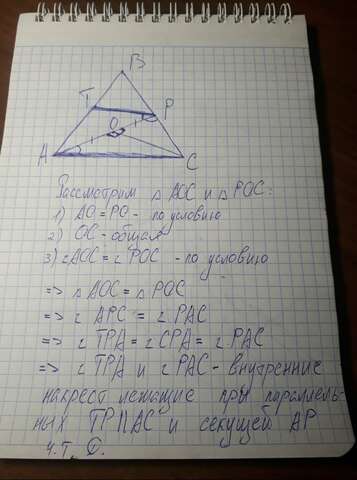 B
T
P
O
A
C
Рассмотрим △ AOC и △ POC:
1) AO = PO - по условию
2) OC - общая
3) ∠AOC = ∠ POC - по условию
=> △ AOC = △ POC
=> ∠ APC = ∠ PAC
=> ∠ TPA = ∠ CPA = ∠ PAC
=> ∠ TPA и ∠ PAC - внутренние
накрест лежащие при параллель-
ных TP || AC и секущей AP
ч.т.д.